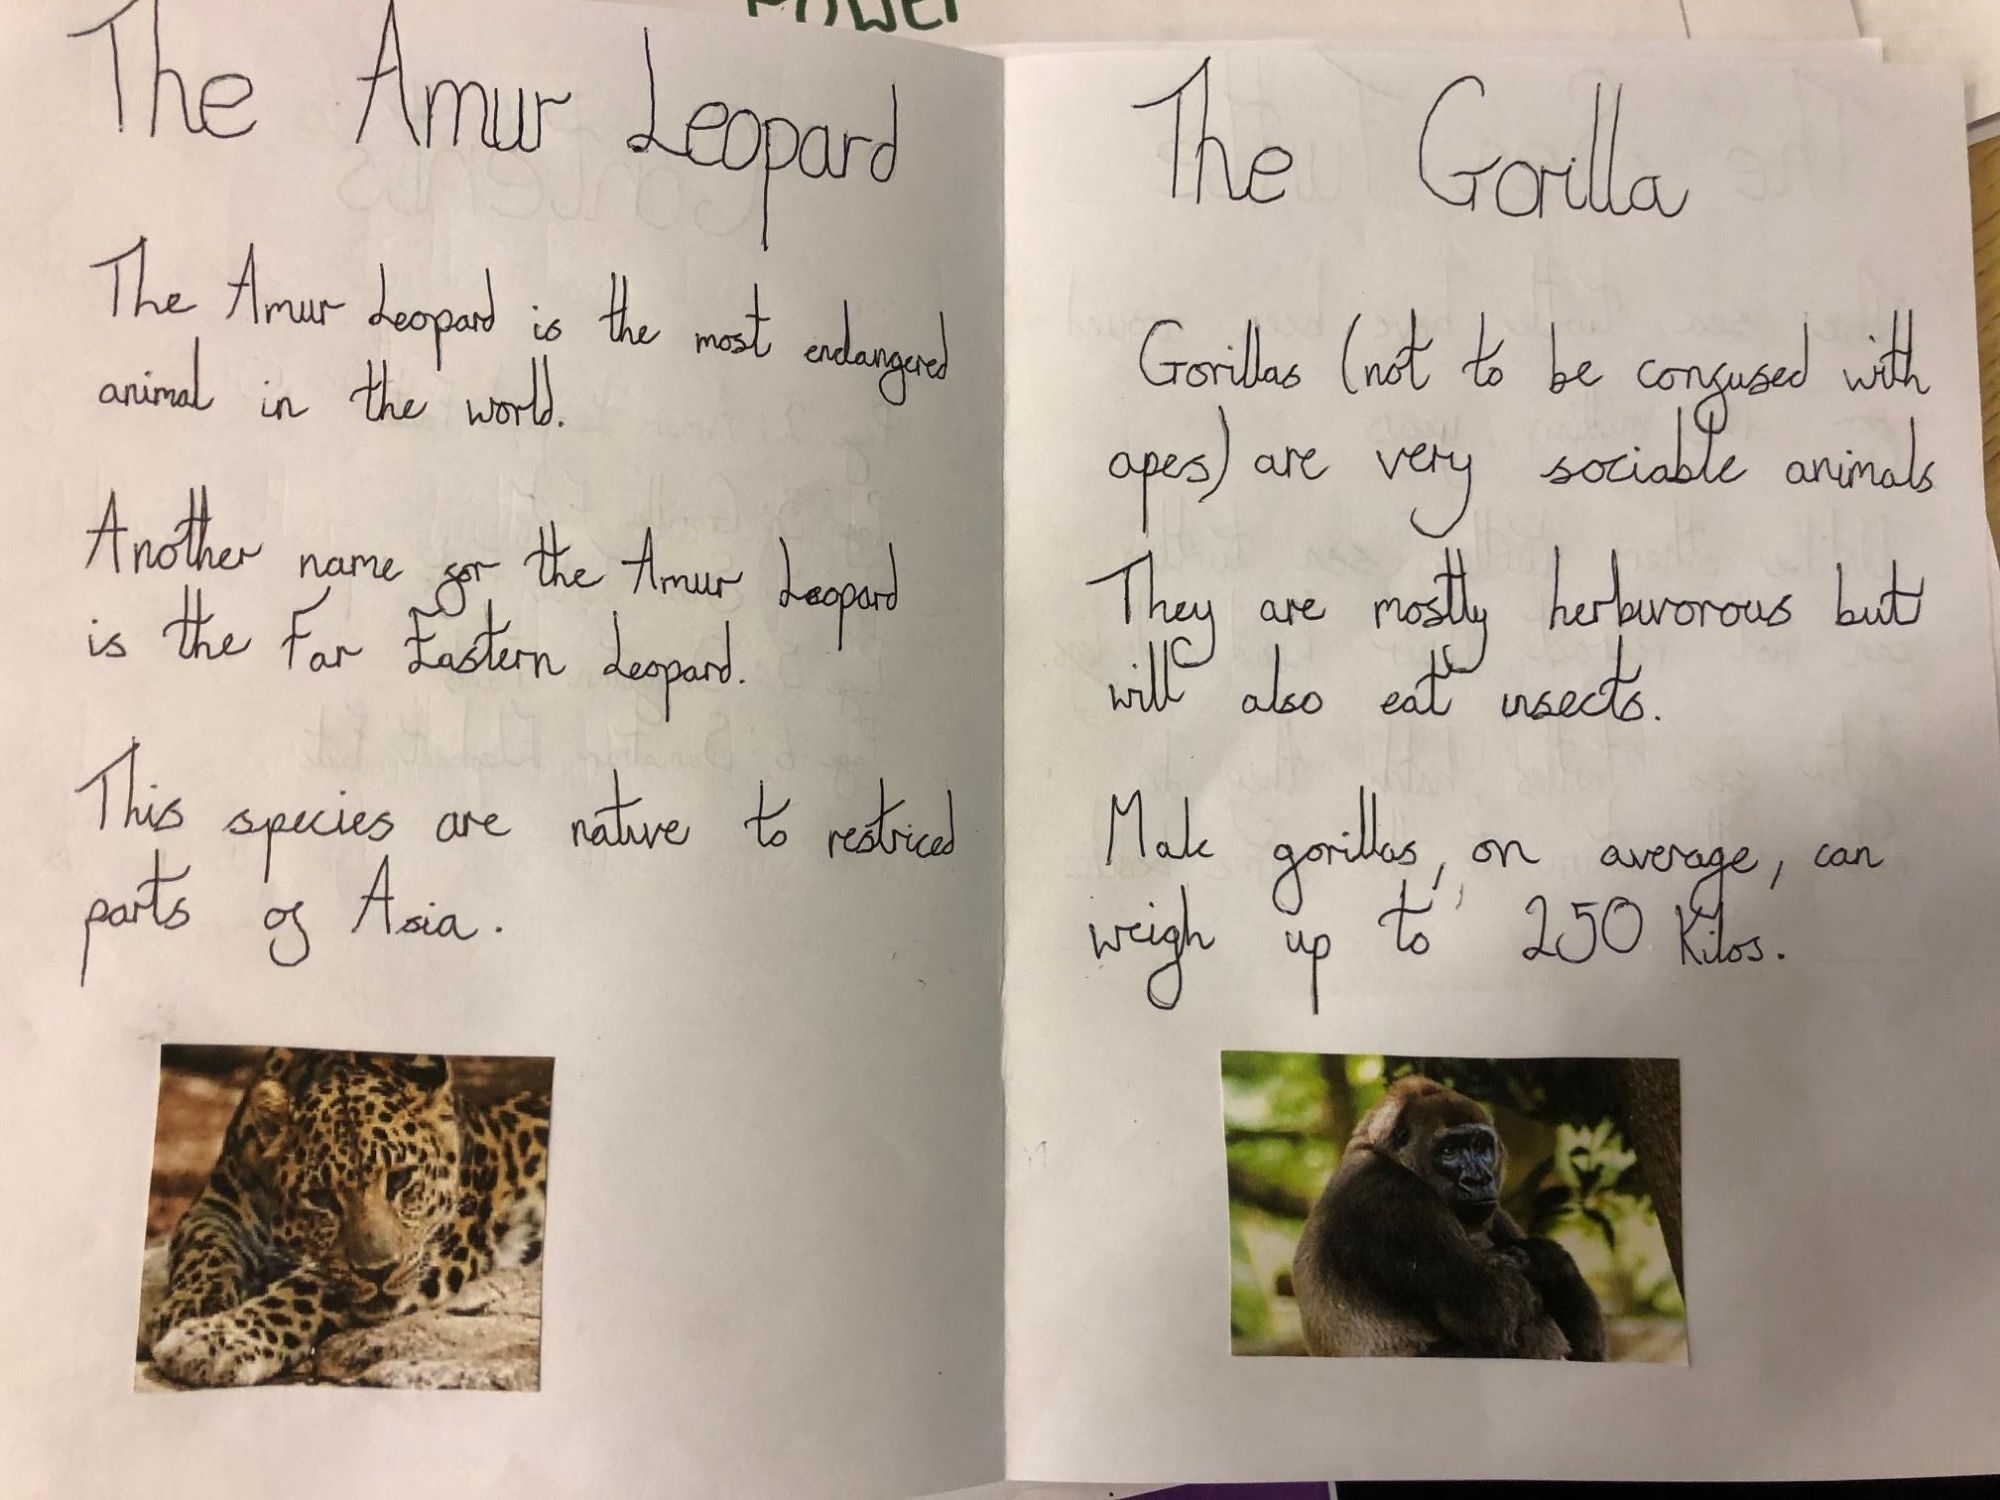 POWER
The Amur Leopard
The Amur Leopard is the most endangered
animal in the world.
Another name for the Amur Leopard
is the Far Eastern Leopard.
This species are native to restriced
parts of Asia.
The Gorilla
Gorillas (not to be confused with
apes) are very sociable animals
They are mostly herbivorous but
will also eat insects.
Male gorillas, on average, can
weigh up to 250 Kilos.